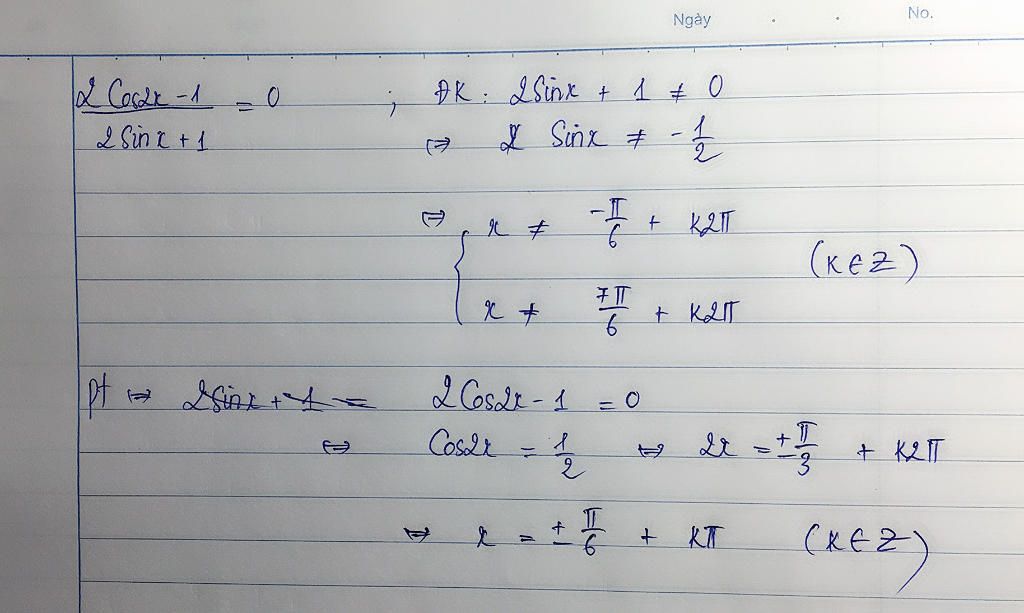 Ngày . . No.
2 Cos2x - 1 / 2 Sin x + 1 = 0 ; ĐK : 2Sinx + 1 ≠ 0
⇔ Sinx ≠ - 1/2
⇔ { x ≠ -π/6 + k2π
x ≠ 7π/6 + k2π (k ∈ Z)
pt ⇔ 2Sinx + 1 = 2Cos2x - 1 = 0
⇔ Cos2x = 1/2 ⇔ 2x = ± π/3 + k2π
⇔ x = ± π/6 + kπ (k ∈ Z)